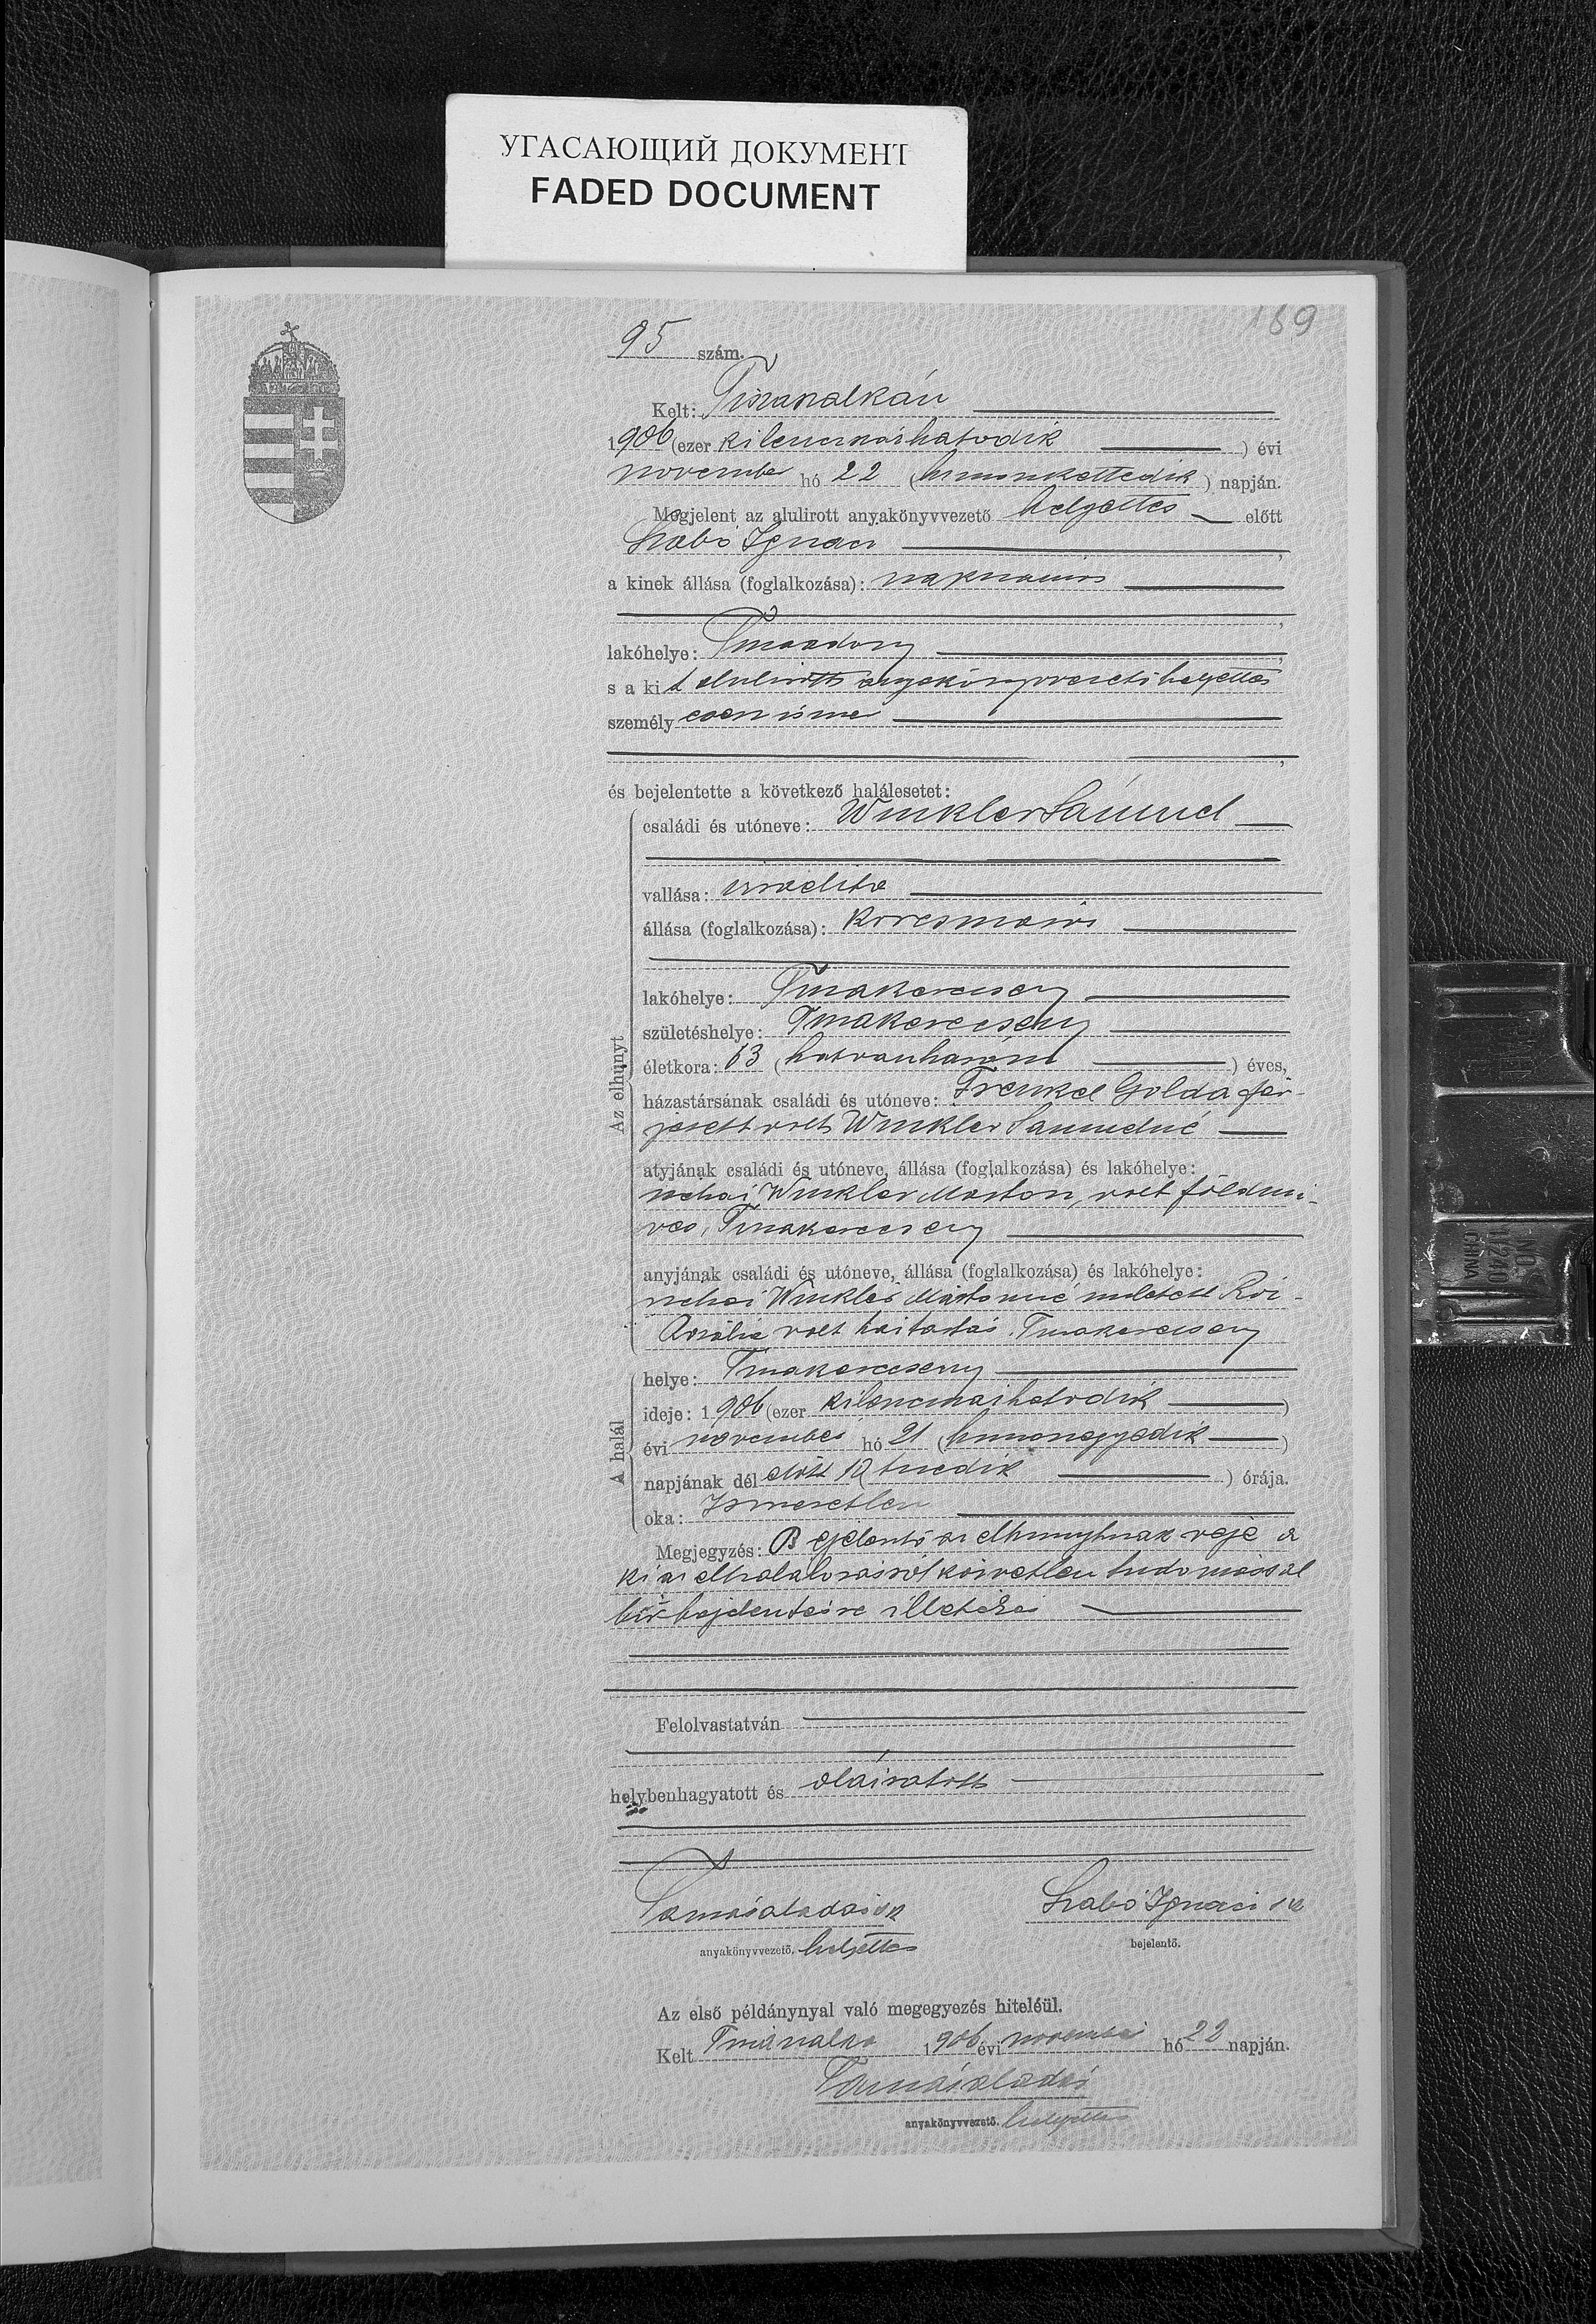 УГАСАЮЩИЙ ДОКУМЕНТ
FADED DOCUMENT
169
95 szám.
Kelt: Tiszaszalkán
1906 (ezer kilenczszázhatodik ) évi
november hó 22 (huszonkettedik) napján.
Megjelent az alulirott anyakönyvvezető helyettes előtt
Szabó Ignácz,
a kinek állása (foglalkozása): napszámos
,
lakóhelye: Tiszaadony,
s a kit alulirott anyakönyvvezető helyettes
személyesen ismer
,
és bejelentette a következő halálesetet:
Az elhunyt
családi és utóneve: Winkler Sámuel
vallása: izraelita
állása (foglalkozása): korcsmáros
lakóhelye: Tiszakerecseny
születéshelye: Tiszakerecseny
életkora: 63 (hatvanhárom ) éves,
házastársának családi és utóneve: Frenkel Golda fér-
jezett volt Winkler Sámuelné
atyjának családi és utóneve, állása (foglalkozása) és lakóhelye:
néhai Winkler Márton, volt földmi-
ves, Tiszakerecseny
anyjának családi és utóneve, állása (foglalkozása) és lakóhelye:
néhai Winkler Mártonné született
Rozália volt háztartás. Tiszakerecseny
A halál
helye: Tiszakerecseny
ideje: 1906 (ezer kilenczszázhatodik )
évi november hó 21 (huszonegyedik )
napjának dél előtt 10 (tizedik ) órája.
oka: Ismeretlen
Megjegyzés: Bejelentő az elhunytnak veje a
ki az elhalálozásról közvetlen tudomással
bir bejelentésre illetékes
Felolvastatván
helybenhagyatott és aláiratott
Tamás Aladár sk
Szabó Ignácz sk
anyakönyvvezető. helyettes
bejelentő.
Az első példánynyal való megegyezés hiteléül.
Kelt Tiszaszalka 1906 évi november hó 22 napján.
Tamás Aladár
anyakönyvvezető. helyettes
NO.
1/240
CHINA